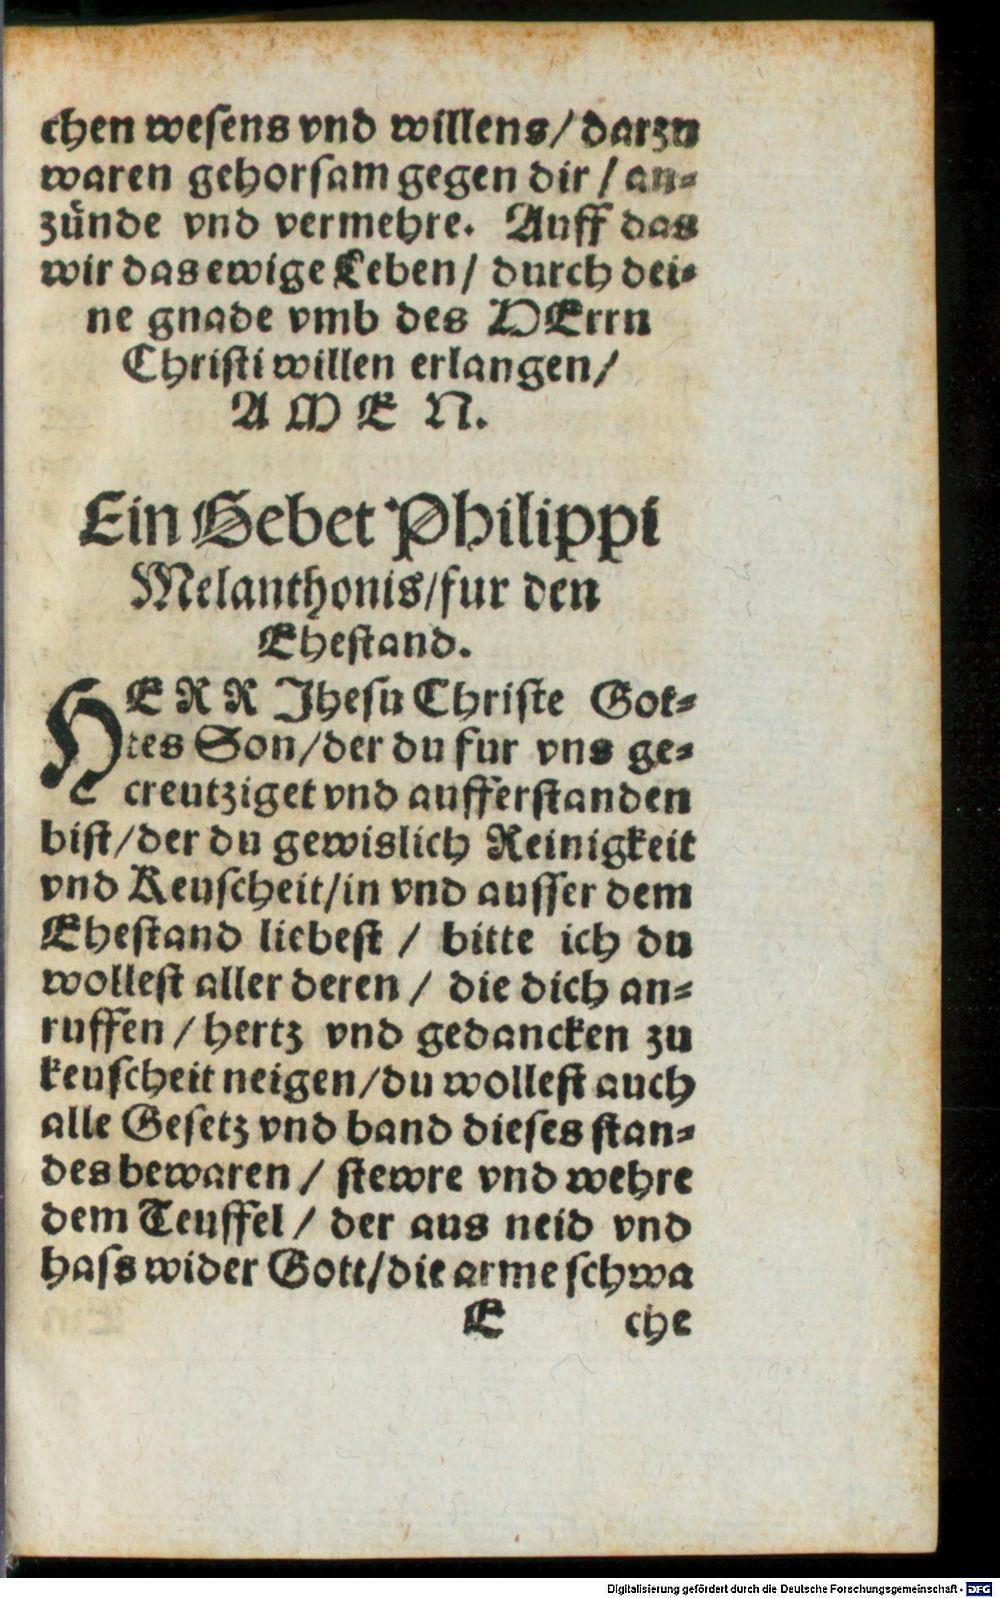 chen wesens vnd willens/darzu
waren gehorsam gegen dir/an⸗
zünde vnd vermehre. Auff das
wir das ewige Leben/ durch dei⸗
ne gnade vmb des HErrn
Christi willen erlangen/
A M E N.
Ein Gebet Philippi
Melanthonis/fur den
Ehestand.
HERR Jhesu Christe Got⸗
tes Son/der du fur vns ge⸗
creutziget vnd aufferstanden
bist/der du gewislich Reinigkeit
vnd Keuscheit/in vnd ausser dem
Ehestand liebest / bitte ich du
wollest aller deren / die dich an⸗
ruffen / hertz vnd gedancken zu
keuscheit neigen/du wollest auch
alle Gesetz vnd band dieses stan⸗
des bewaren / stewre vnd wehre
dem Teuffel / der aus neid vnd
hass wider Gott/die arme schwa
E che
Digitalisierung gefördert durch die Deutsche Forschungsgemeinschaft - DFG